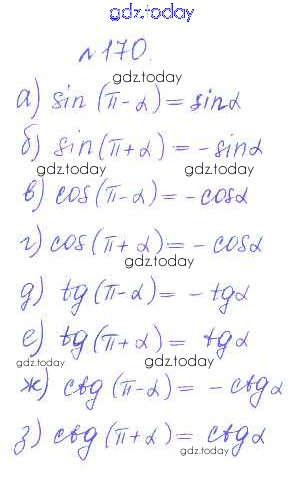 gdz.today
№170.
gdz.today
а) sin (π-α) = sinα
б) sin(π+α) = - sinα
gdz.today gdz.today
в) cos(π-α) = -cosα
г) cos(π+α) = - cosα
gdz.today
д) tg(π-α) = - tgα
е) tg(π+α) = tgα
gdz.today gdz.today
ж) ctg(π-α) = - ctgα
з) ctg(π+α) = ctgα
gdz.today